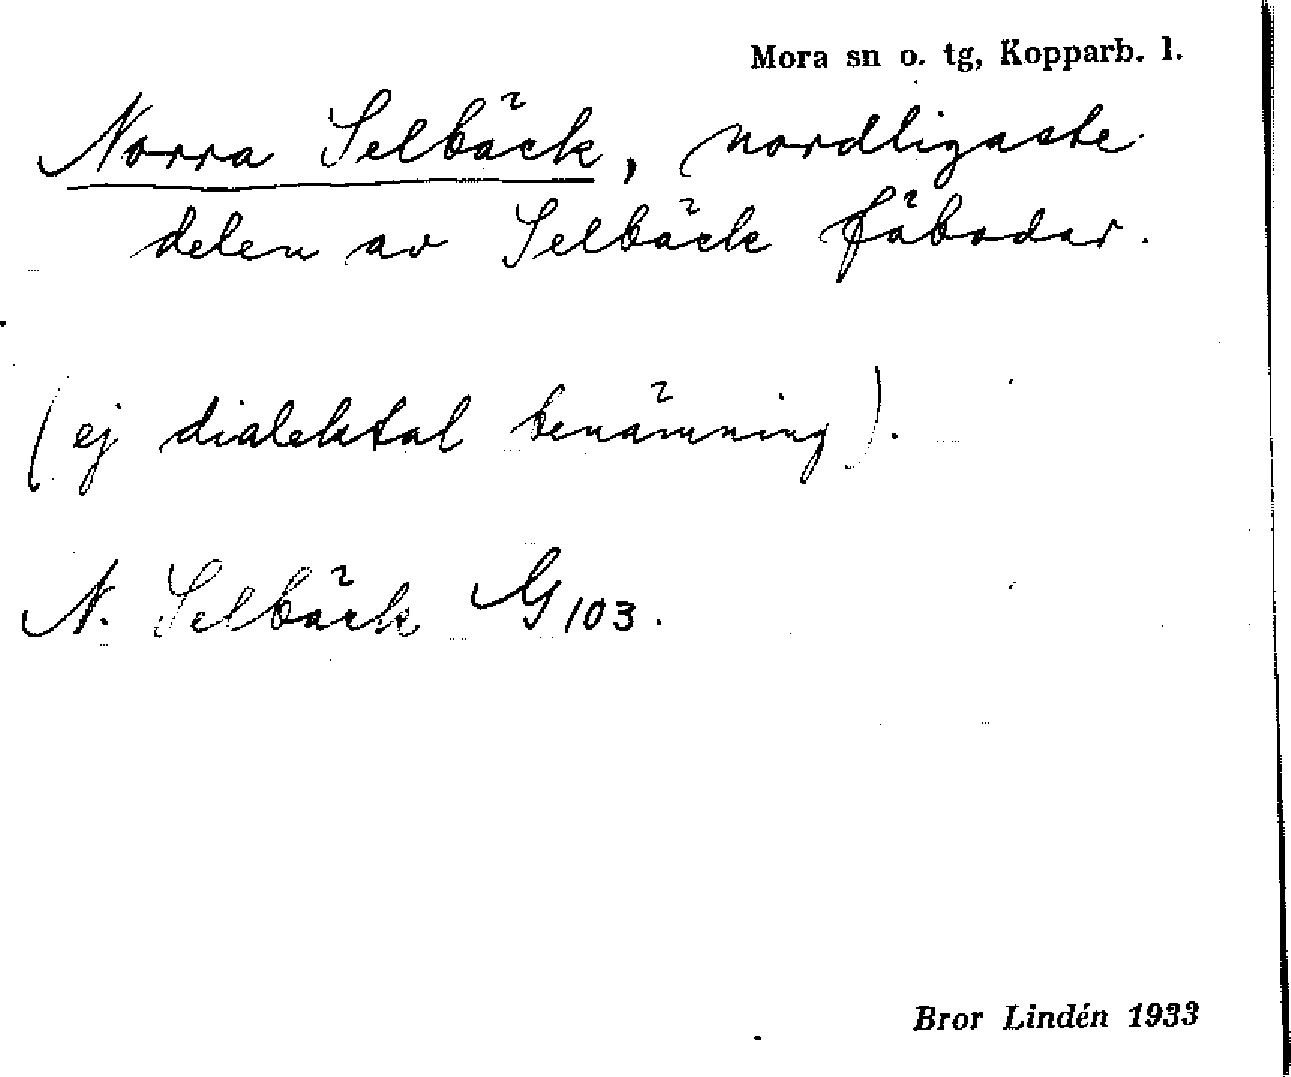 Mora sn o. tg, Kopparb. l.
Norra Selbäck, nordligaste
delen av Selbäck fäbodar.
(ej dialektal benämning).
N. Selbäck G 103.
Bror Lindén 1933